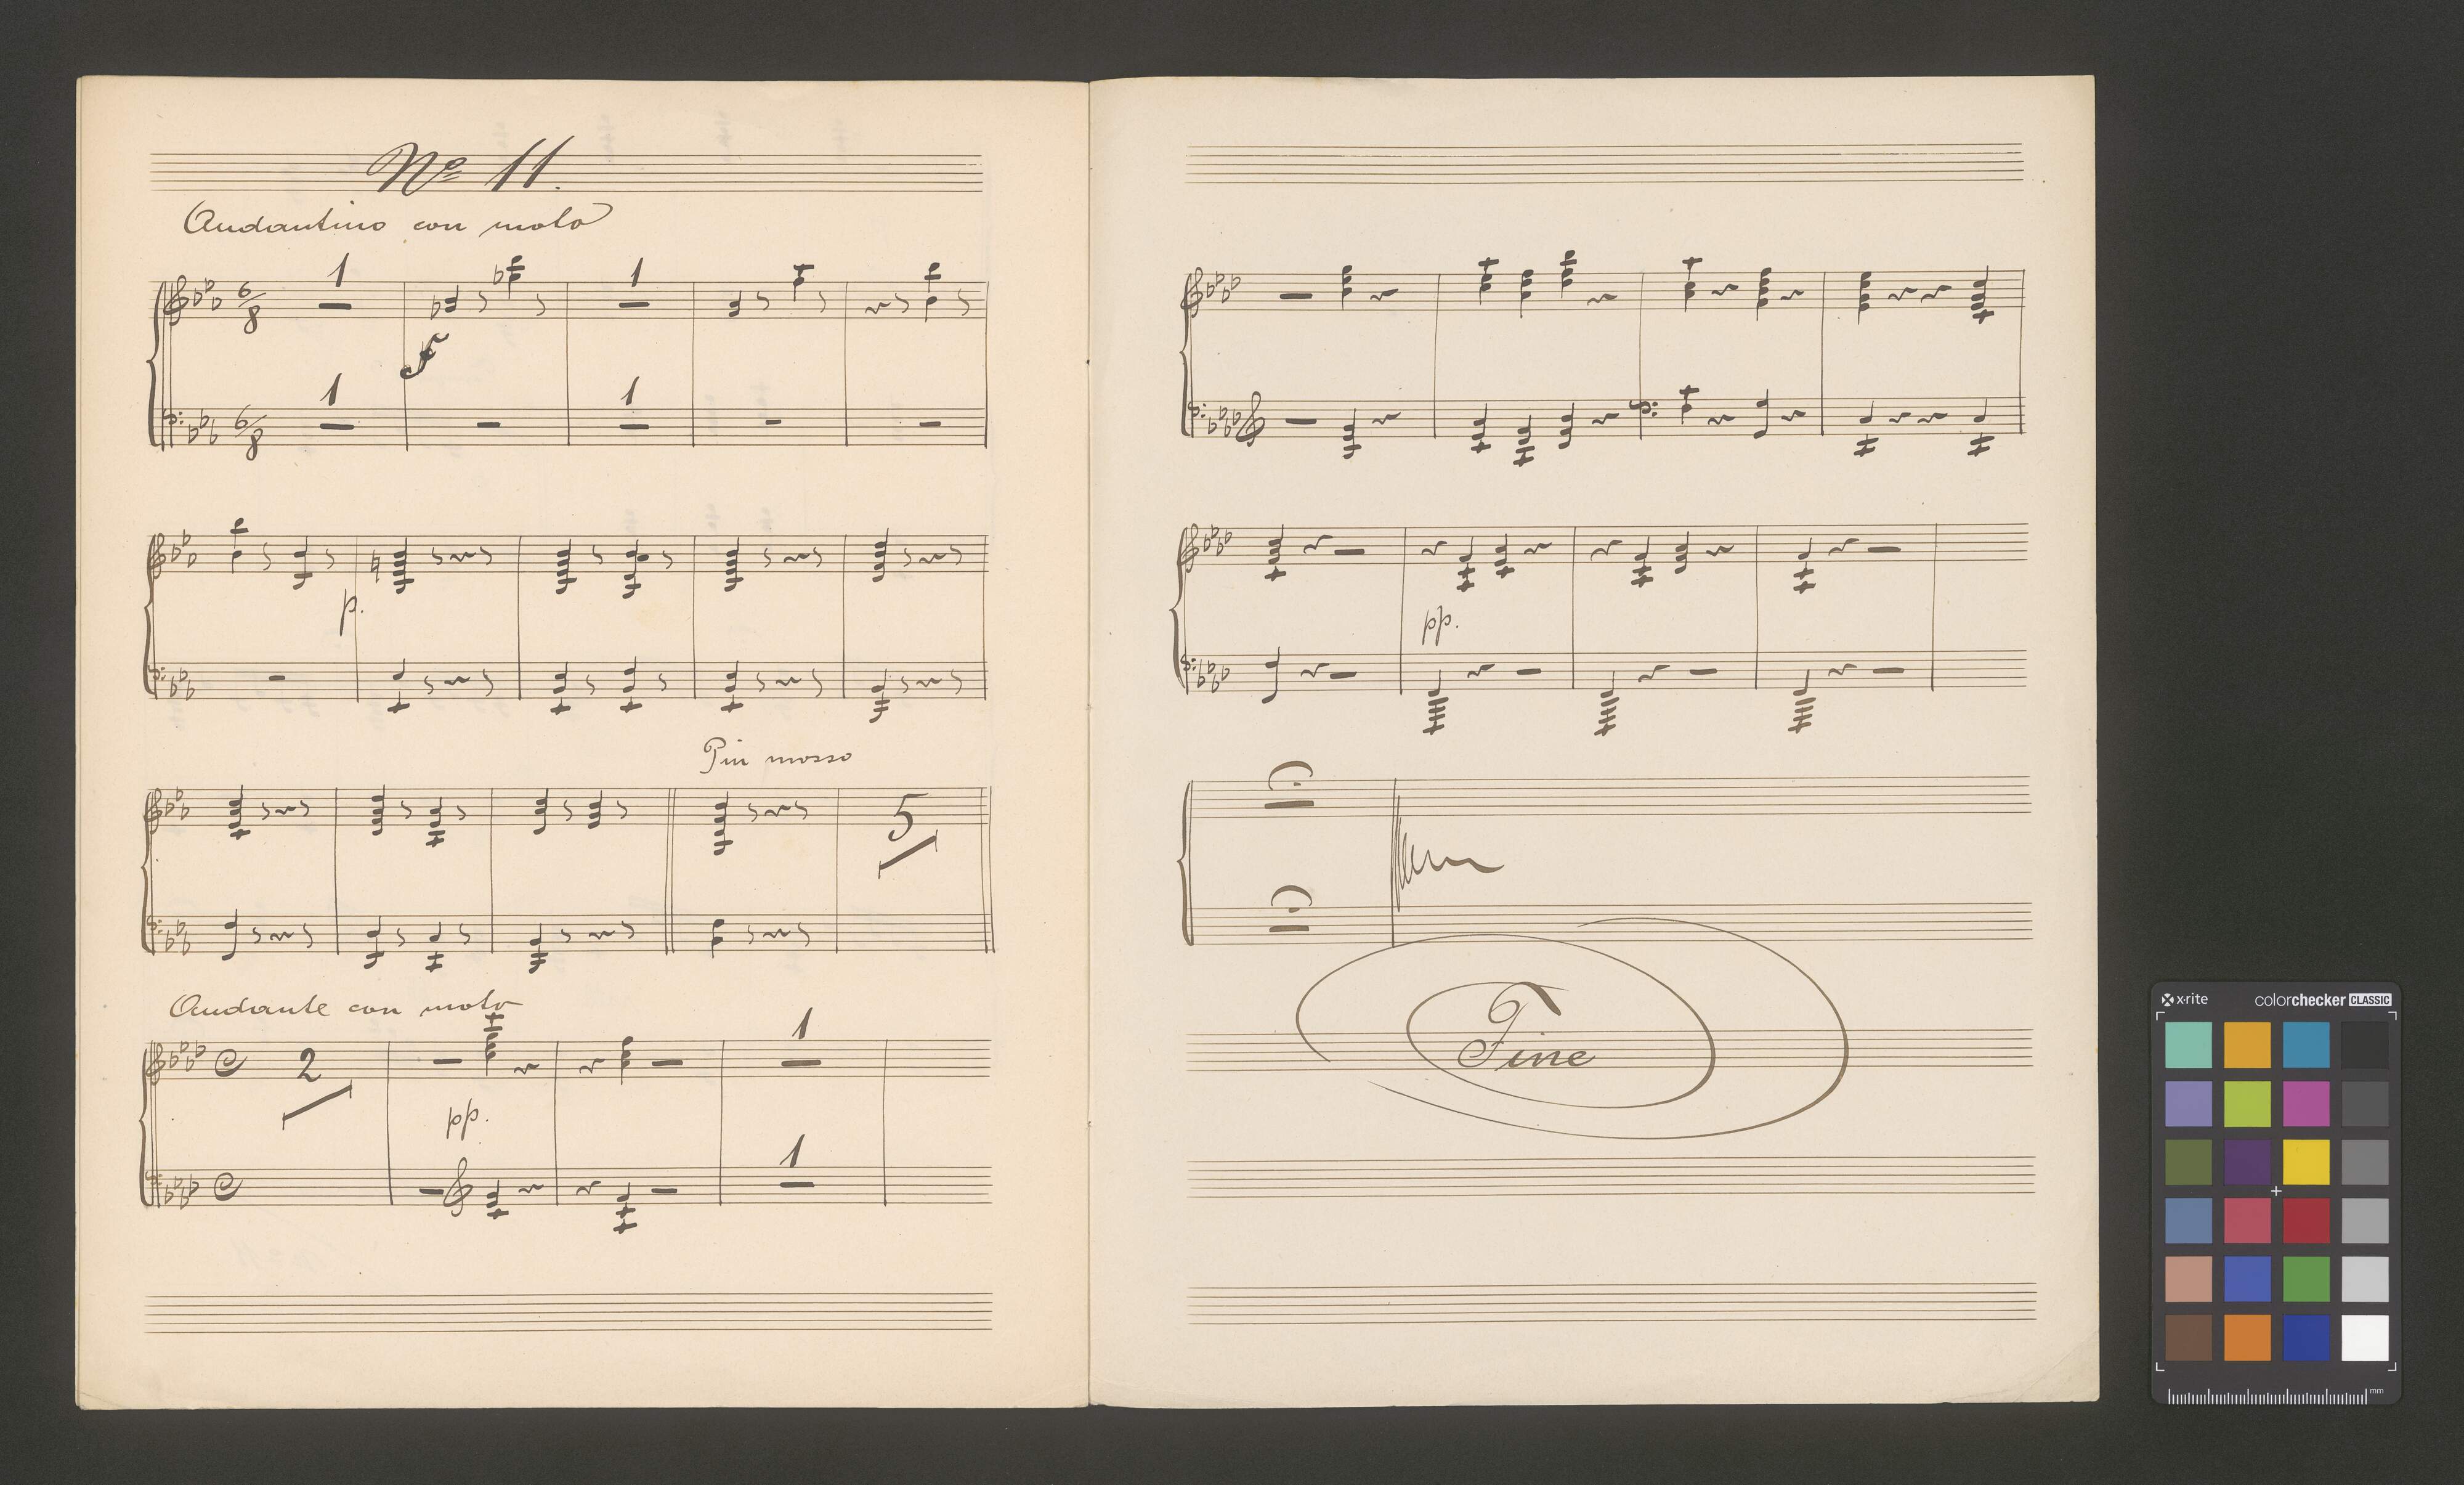 Nº 11.
Andantino con moto
6/8
1
1
f
6/8
1
1
p.
Piu mosso
5
Andante con moto
2
1
pp.
1
pp.
Fine
x·rite colorchecker CLASSIC
mm